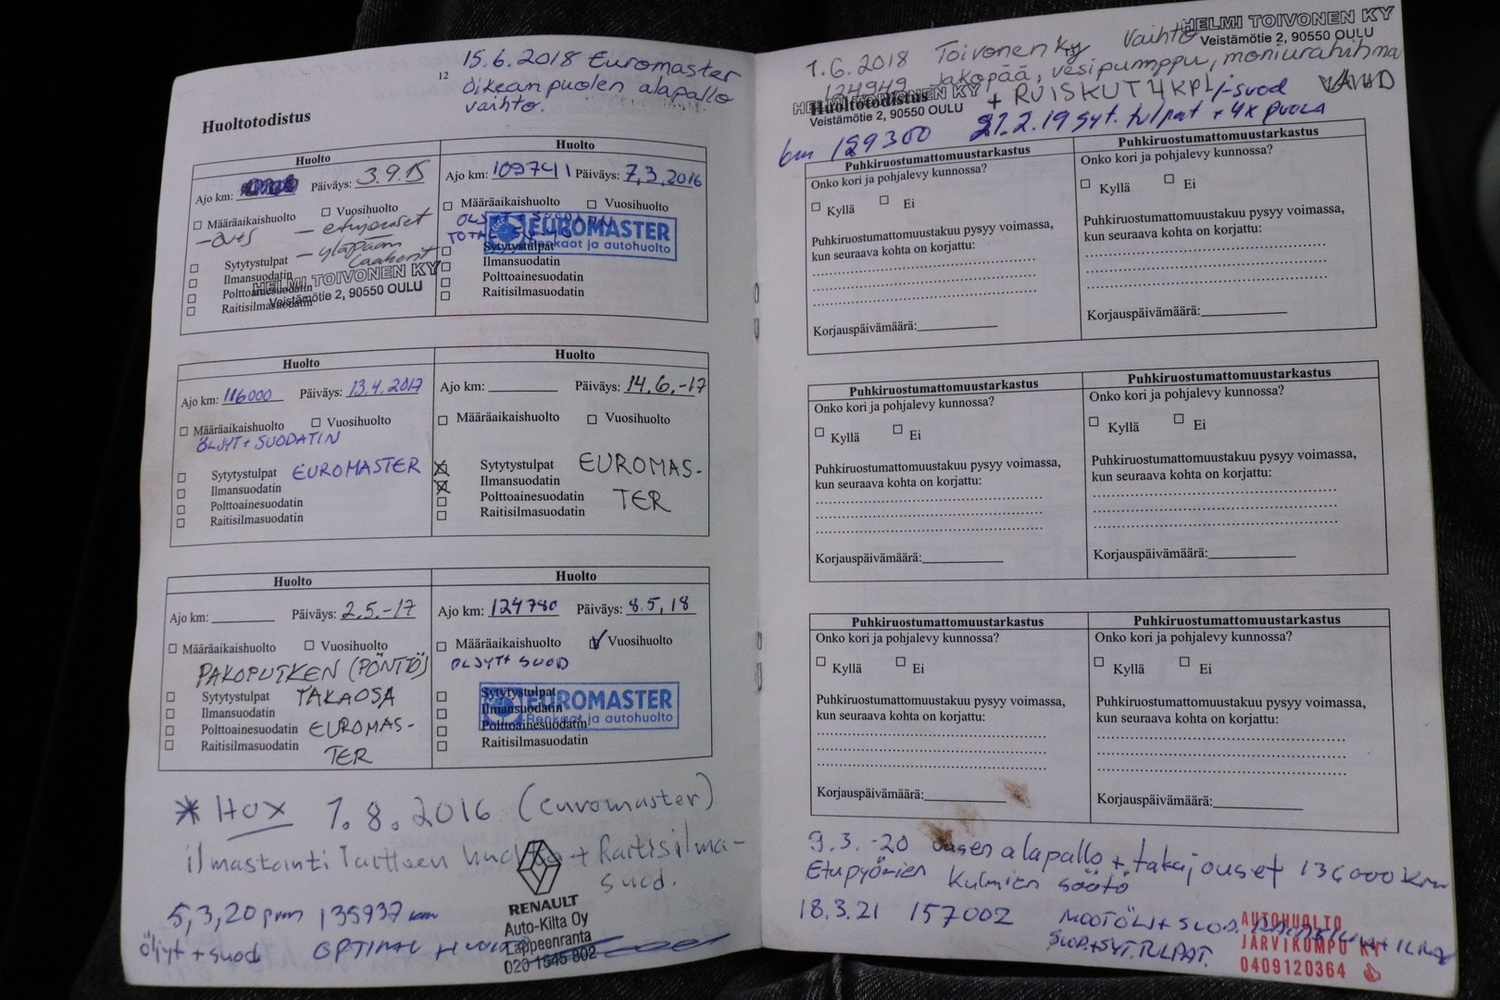 15.6.2018 Euromaster
oikean puolen alapallo
vaihto.
12
Huoltotodistus
Huolto
Ajo km: Päiväys: 3.9.15
Määräaikaishuolto Vuosihuolto
- etujouset
- yläpään
laakerit
Sytytystulpat
Ilmansuodatin
Polttoainesuodatin
Raitisilmasuodatin
HELMI TOIVONEN KY
Veistämötie 2, 90550 OULU
Huolto
Ajo km: 109741 Päiväys: 7,3,2016
Määräaikaishuolto Vuosihuolto
EUROMASTER
Renkaat ja autohuolto
Sytytystulpat
Ilmansuodatin
Polttoainesuodatin
Raitisilmasuodatin
Huolto
Ajo km: 116000 Päiväys: 13.4.2017
Määräaikaishuolto Vuosihuolto
ÖLJYT+SUODATIN
Sytytystulpat EUROMASTER
Ilmansuodatin
Polttoainesuodatin
Raitisilmasuodatin
Huolto
Ajo km: Päiväys: 14.6.-17
Määräaikaishuolto Vuosihuolto
Sytytystulpat EUROMAS-
Ilmansuodatin
Polttoainesuodatin TER
Raitisilmasuodatin
Huolto
Ajo km: Päiväys: 2.5.-17
Määräaikaishuolto Vuosihuolto
PAKOPUTKEN (PÖNTTÖ)
Sytytystulpat TAKAOSA
Ilmansuodatin
Polttoainesuodatin EUROMAS-
Raitisilmasuodatin TER
Huolto
Ajo km: 124780 Päiväys: 8.5,18
Määräaikaishuolto Vuosihuolto
ÖLJYT+ SUOD
Sytytystulpat
EUROMASTER
Ilmansuodatin
Renkaat ja autohuolto
Polttoainesuodatin
Raitisilmasuodatin
* HOX 1.8.2016 (euromaster)
ilmastointi laitteen huolto + Raitisilma-
suod.
5,3,20 pvm 135937 km
öljyt + suod OPTIMAL HUOLTO
RENAULT
Auto-Kilta Oy
Lappeenranta
020 1545 802
HELMI TOIVONEN KY
Veistämötie 2, 90550 OULU
7.6.2018 Toivonen Ky Vaihto
124949 Jakopää, vesipumppu, moniurahihna
HELMI TOIVONEN KY + RUISKUT 4KPL
Huoltotodistus
Veistämötie 2, 90550 OULU
i-suod
km 129300 21.2.19 syt. tulpat + 4x puola
Puhkiruostumattomuustarkastus
Onko kori ja pohjalevy kunnossa?
Kyllä Ei
Puhkiruostumattomuustakuu pysyy voimassa,
kun seuraava kohta on korjattu:
Korjauspäivämäärä:
Puhkiruostumattomuustarkastus
Onko kori ja pohjalevy kunnossa?
Kyllä Ei
Puhkiruostumattomuustakuu pysyy voimassa,
kun seuraava kohta on korjattu:
Korjauspäivämäärä:
Puhkiruostumattomuustarkastus
Onko kori ja pohjalevy kunnossa?
Kyllä Ei
Puhkiruostumattomuustakuu pysyy voimassa,
kun seuraava kohta on korjattu:
Korjauspäivämäärä:
Puhkiruostumattomuustarkastus
Onko kori ja pohjalevy kunnossa?
Kyllä Ei
Puhkiruostumattomuustakuu pysyy voimassa,
kun seuraava kohta on korjattu:
Korjauspäivämäärä:
Puhkiruostumattomuustarkastus
Onko kori ja pohjalevy kunnossa?
Kyllä Ei
Puhkiruostumattomuustakuu pysyy voimassa,
kun seuraava kohta on korjattu:
Korjauspäivämäärä:
Puhkiruostumattomuustarkastus
Onko kori ja pohjalevy kunnossa?
Kyllä Ei
Puhkiruostumattomuustakuu pysyy voimassa,
kun seuraava kohta on korjattu:
Korjauspäivämäärä:
9.3.-20 vasen alapallo + takajouset 136000 km
Etupyörien kulmien säätö
18.3.21 157002 MOOTÖLJ+SUOD.
SUOD.+SYT.TULPAT.
AUTOHUOLTO
JÄRVIKUMPU KY
0409120364